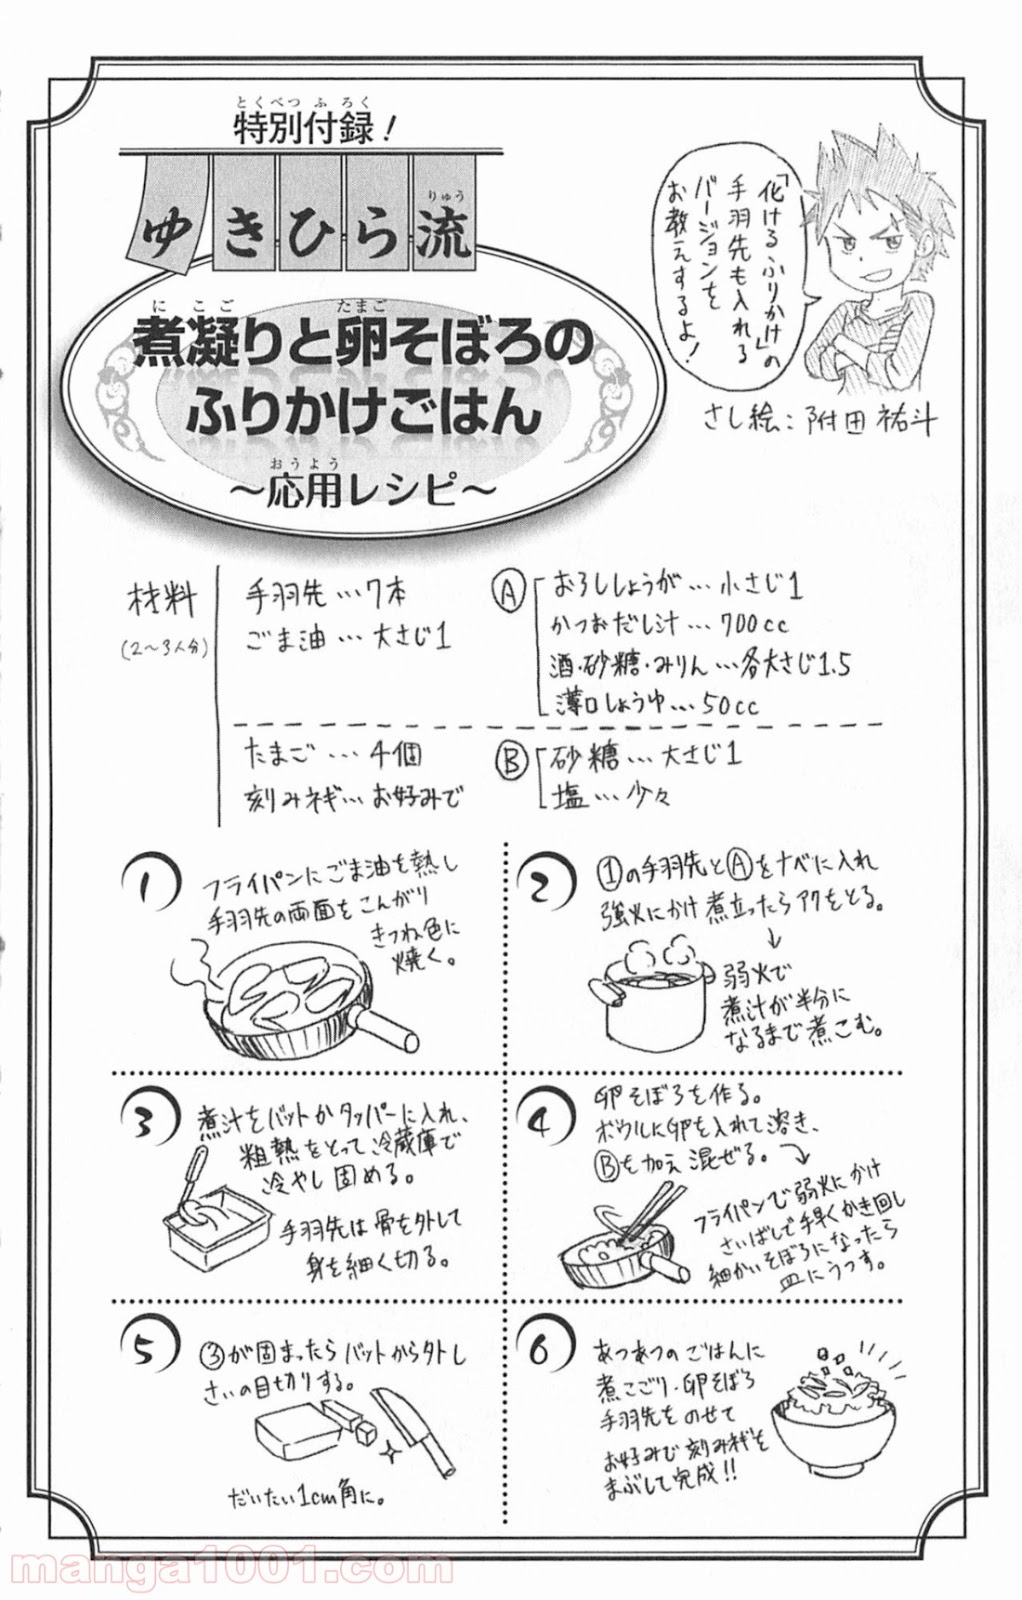 とくべつふろく
特別付録!
りゅう
ゆきひら流
にこご たまご
煮凝りと卵そぼろの
ふりかけごはん
おうよう
〜応用レシピ〜
「化けるふりかけ」の
手羽先も入れる
バージョンを
お教えするよ!
さし絵:附田祐斗
材料
(2〜3人分)
手羽先…7本
ごま油…大さじ1
Ⓐ
おろししょうが…小さじ1
かつおだし汁…700cc
酒・砂糖・みりん…各大さじ1.5
薄口しょうゆ…50cc
たまご…4個
刻みネギ…お好みで
Ⓑ
砂糖…大さじ1
塩…少々
1
フライパンにごま油を熱し
手羽先の両面をこんがり
きつね色に
焼く。
2
①の手羽先とⒶをナベに入れ
強火にかけ煮立ったらアクをとる。
↓
弱火で
煮汁が半分に
なるまで煮こむ。
3
煮汁をバットかタッパーに入れ、
粗熱をとって冷蔵庫で
冷やし固める。
手羽先は骨を外して
身を細く切る。
4
卵そぼろを作る。
ボウルに卵を入れて溶き、
Ⓑを加え混ぜる。
フライパンで弱火にかけ
さいばしで手早くかき回し
細かいそぼろになったら
皿にうつす。
5
③が固まったらバットから外し
さいの目切りする。
だいたい1cm角に。
6
あつあつのごはんに
煮こごり・卵そぼろ
手羽先をのせて
お好みで刻みネギを
まぶして完成!!
manga1001.com